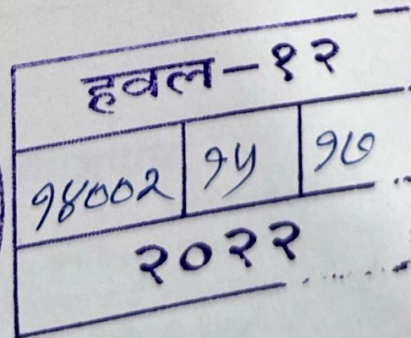 हवल-१२
१४००२ १५ १७
२०२२